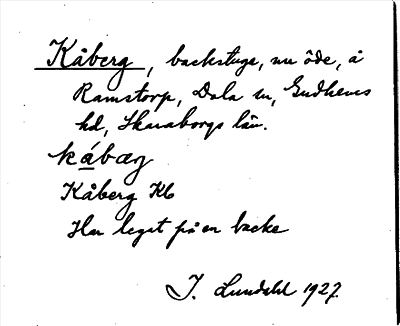 Kåberg, backstuga, nu öde, å
Ramstorp, Dala sn, Gudhems
hd, Skaraborgs län.
kábæg
Kåberg Kb
Har legat på en backe
J. Lundahl 1927.